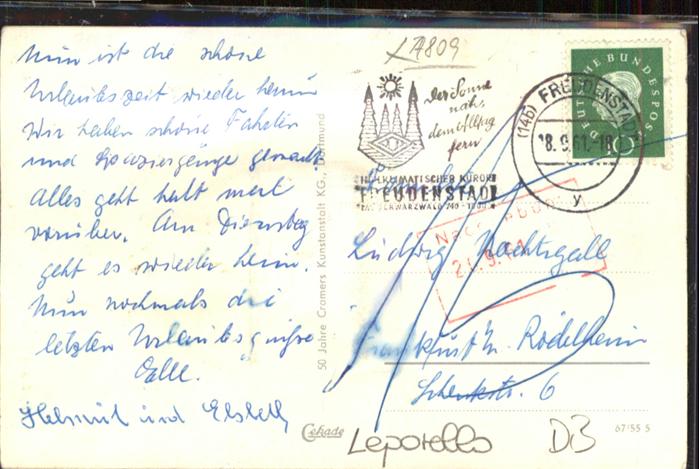 Nun ist die schöne
Urlaubszeit wieder herum
Wir haben schöne Fahrten
und Spaziergänge gemacht
Alles geht halt mal
vorüber. Am Dienstag
geht es wieder heim.
Nun nochmals die
letzten Urlaubsgrüße
Helmut und Elsbeth
50 Jahre Cramers Kunstanstalt KG., Dortmund
Cekade
4809
Der Sonne
nah,
dem Alltag
fern
HEILKLIMATISCHER KURORT
FREUDENSTADT
IM SCHWARZWALD 740 - 1000 m
DEUTSCHE BUNDESPOST
(14b) FREUDENSTADT
18.9.61.-18
y
Nachgebühr
21.9.
Familie
Ludwig Nachtigall
Frankfurt/M. Rödelheim
Schenkstr. 6
Leporello DB
67/55 5